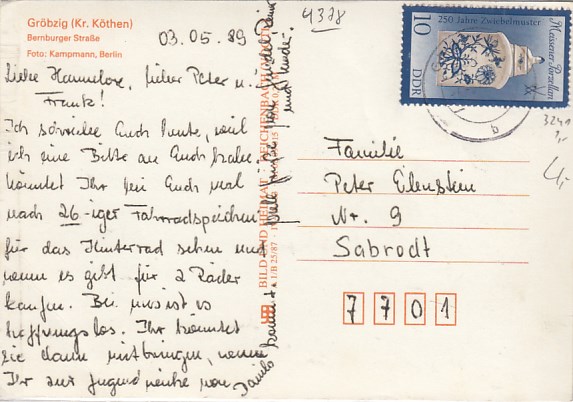 Gröbzig (Kr. Köthen)
Bernburger Straße
Foto: Kampmann, Berlin
03.05.89
4378
Liebe Hannelore, lieber Peter u.
Frank!
Ich schreibe Euch heute, weil
ich eine Bitte an Euch habe.
könntet Ihr bei Euch mal
nach 26-iger Fahrradspeichen
für das Hinterrad sehen und
wenn es gibt für 2 Räder
kaufen. Bei uns ist es
hoffnungslos. Ihr könntet
sie dann mitbringen, wenn
Ihr zur Jugendweihe von
BILD UND HEIMAT REICHENBACH
1/B 25/87
250 Jahre Zwiebelmuster
Meissener Porzellan
10
DDR
b
3241
1,-
4,-
Familie
Peter Eilenstein
Nr. 9
Sabrodt
7701